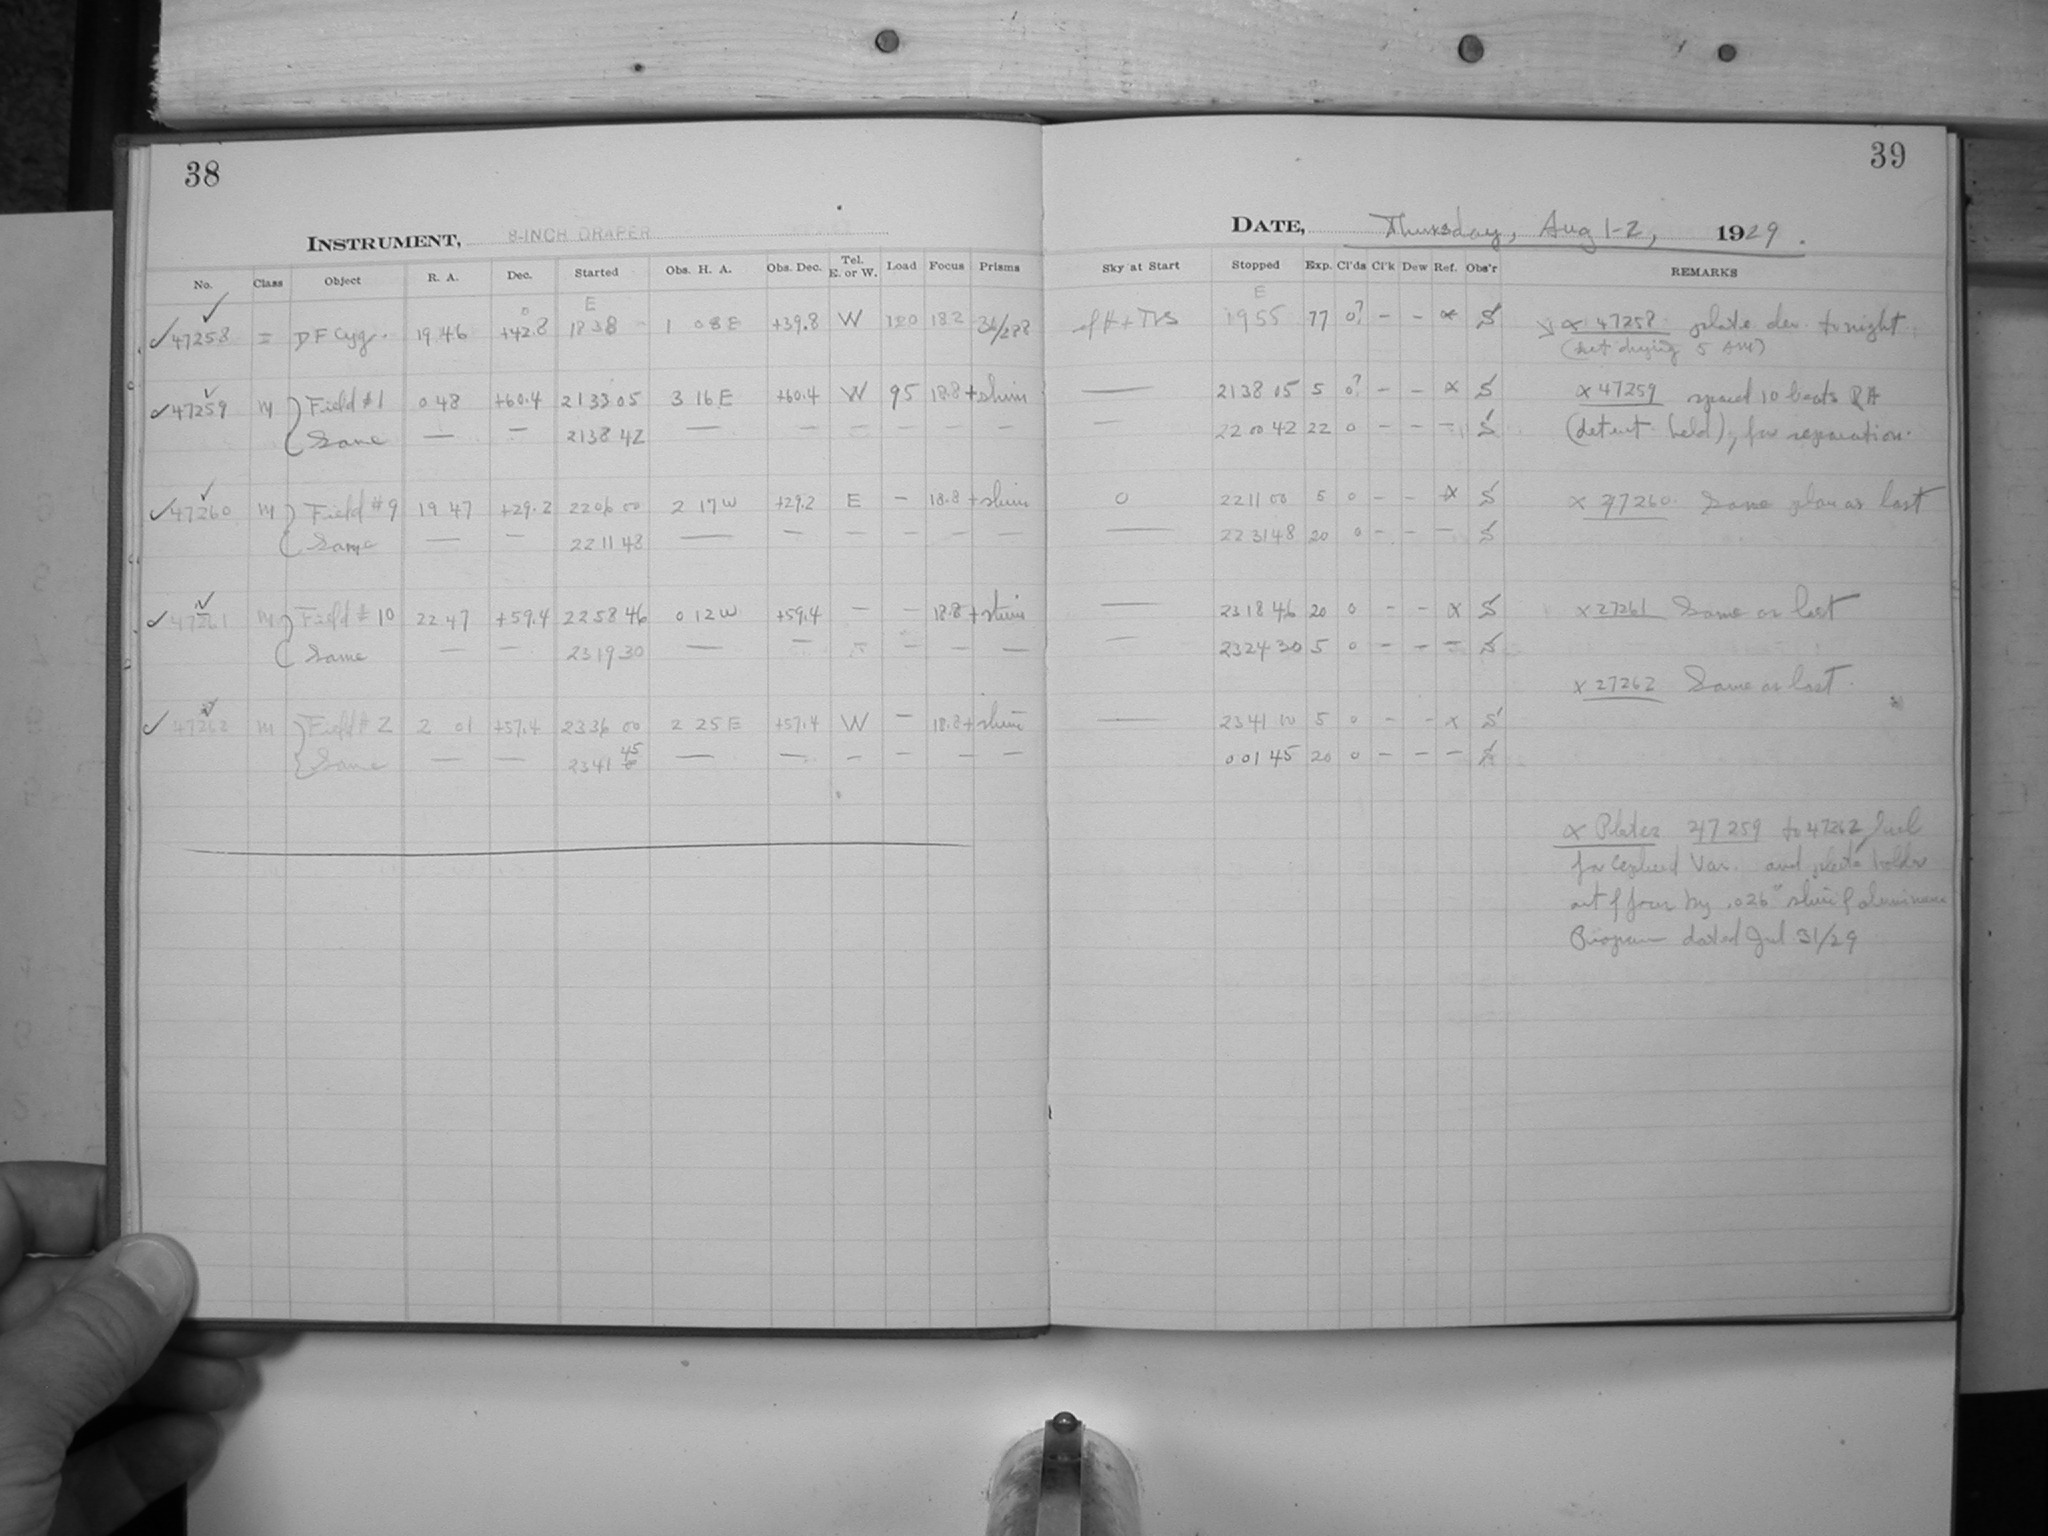 38
INSTRUMENT, 8-INCH DRAPER
No. Class Object R. A. Dec. Started Obs. H. A. Obs. Dec. Tel. E. or W. Load Focus Prisms
47258 I DF Cyg. 19 46 +42.8 E 18 38 1 08 E +39.8 W 120 18.2
47259 M Field #1 0 48 +60.4 21 33 05 3 16 E +60.4 W 95 18.8 + shim
Same — — 21 38 42 — — — — — —
47260 M Field #9 19 47 +29.2 22 06 00 2 17 W +29.2 E — 18.8 + shim
Same — — 22 11 48 — — — — — —
47261 M Field #10 22 47 +59.4 22 58 46 0 12 W +59.4 — — 18.8 + shim
Same — — 23 19 30 — — — — —
47262 M Field #2 2 01 +57.4 23 36 00 2 25 E +57.4 W — 18.8 + shim
Same — — 23 41 45 — — — — —
39
DATE, Thursday, Aug 1-2, 1929.
Sky at Start Stopped Exp. Cl'ds Cl'k Dew Ref. Obs'r REMARKS
E 19 55 77 0? — — x S x 47258 plate dev. tonight
(set drying 5 AM)
— 21 38 05 5 0? — — x S x 47259 spaced 10 beats RA
— 22 00 42 22 0 — — — S (detent held), for separation.
0 22 11 00 5 0 — — x S x 47260. Same plan as last
— 22 31 48 20 0 — — — S
— 23 18 46 20 0 — — x S x 27261 Same as last
— 23 24 30 5 0 — — — S
x 27262 Same as last.
— 23 41 10 5 0 — — x S
0 01 45 20 0 — — — S
x Plates 47259 to 47262,
for Cepheid Var. and plate holder
out of focus by .026" shim of aluminum
Program dated Jul 31/29